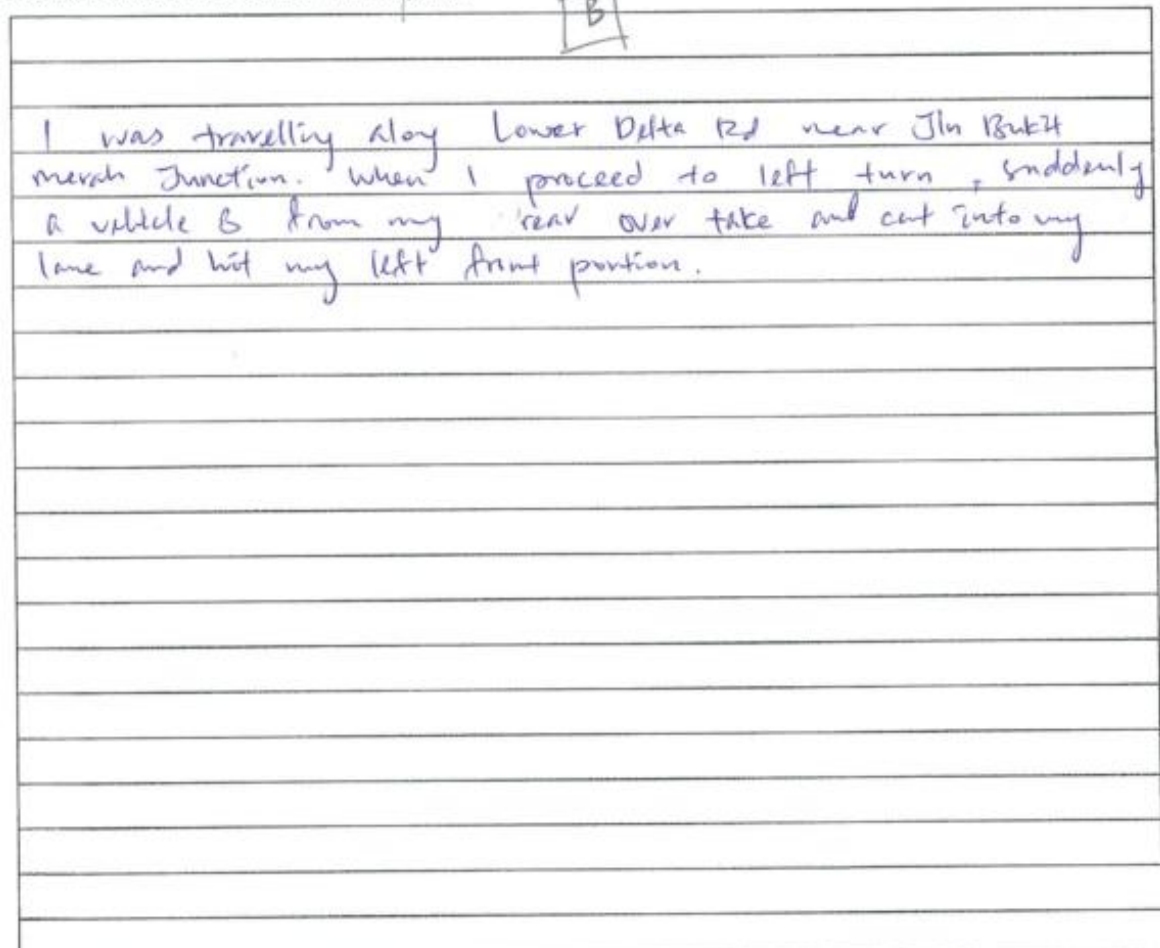 B
I was travelling along Lower Delta Rd near Jln Bukit
merah Junction. When I proceed to left turn, suddenly
a vehicle B from my rear over take and cut into my
lane and hit my left front portion.